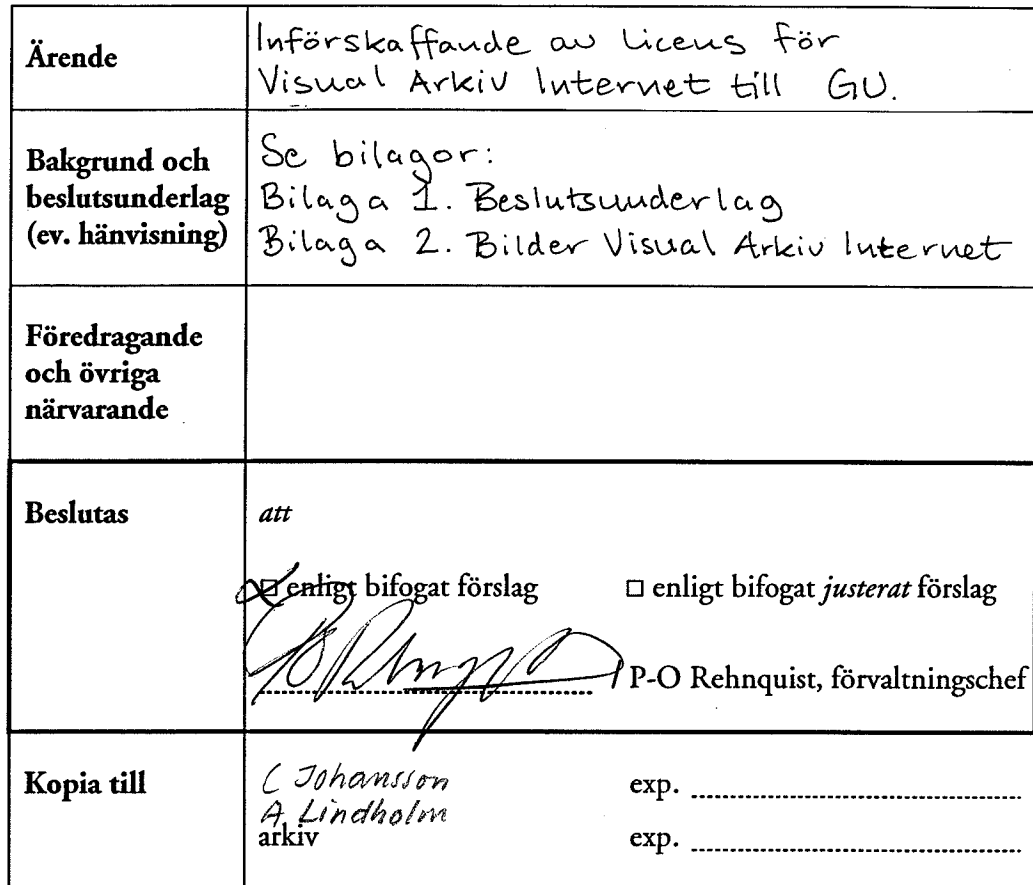 Ärende
Införskaffande av licens för
Visual Arkiv Internet till GU.
Bakgrund och
beslutsunderlag
(ev. hänvisning)
Se bilagor:
Bilaga 1. Beslutsunderlag
Bilaga 2. Bilder Visual Arkiv Internet
Föredragande
och övriga
närvarande
Beslutas
att
☒ enligt bifogat förslag
☐ enligt bifogat justerat förslag
/ P-O Rehnquist, förvaltningschef
Kopia till
C Johansson
A Lindholm
arkiv
exp.
exp.